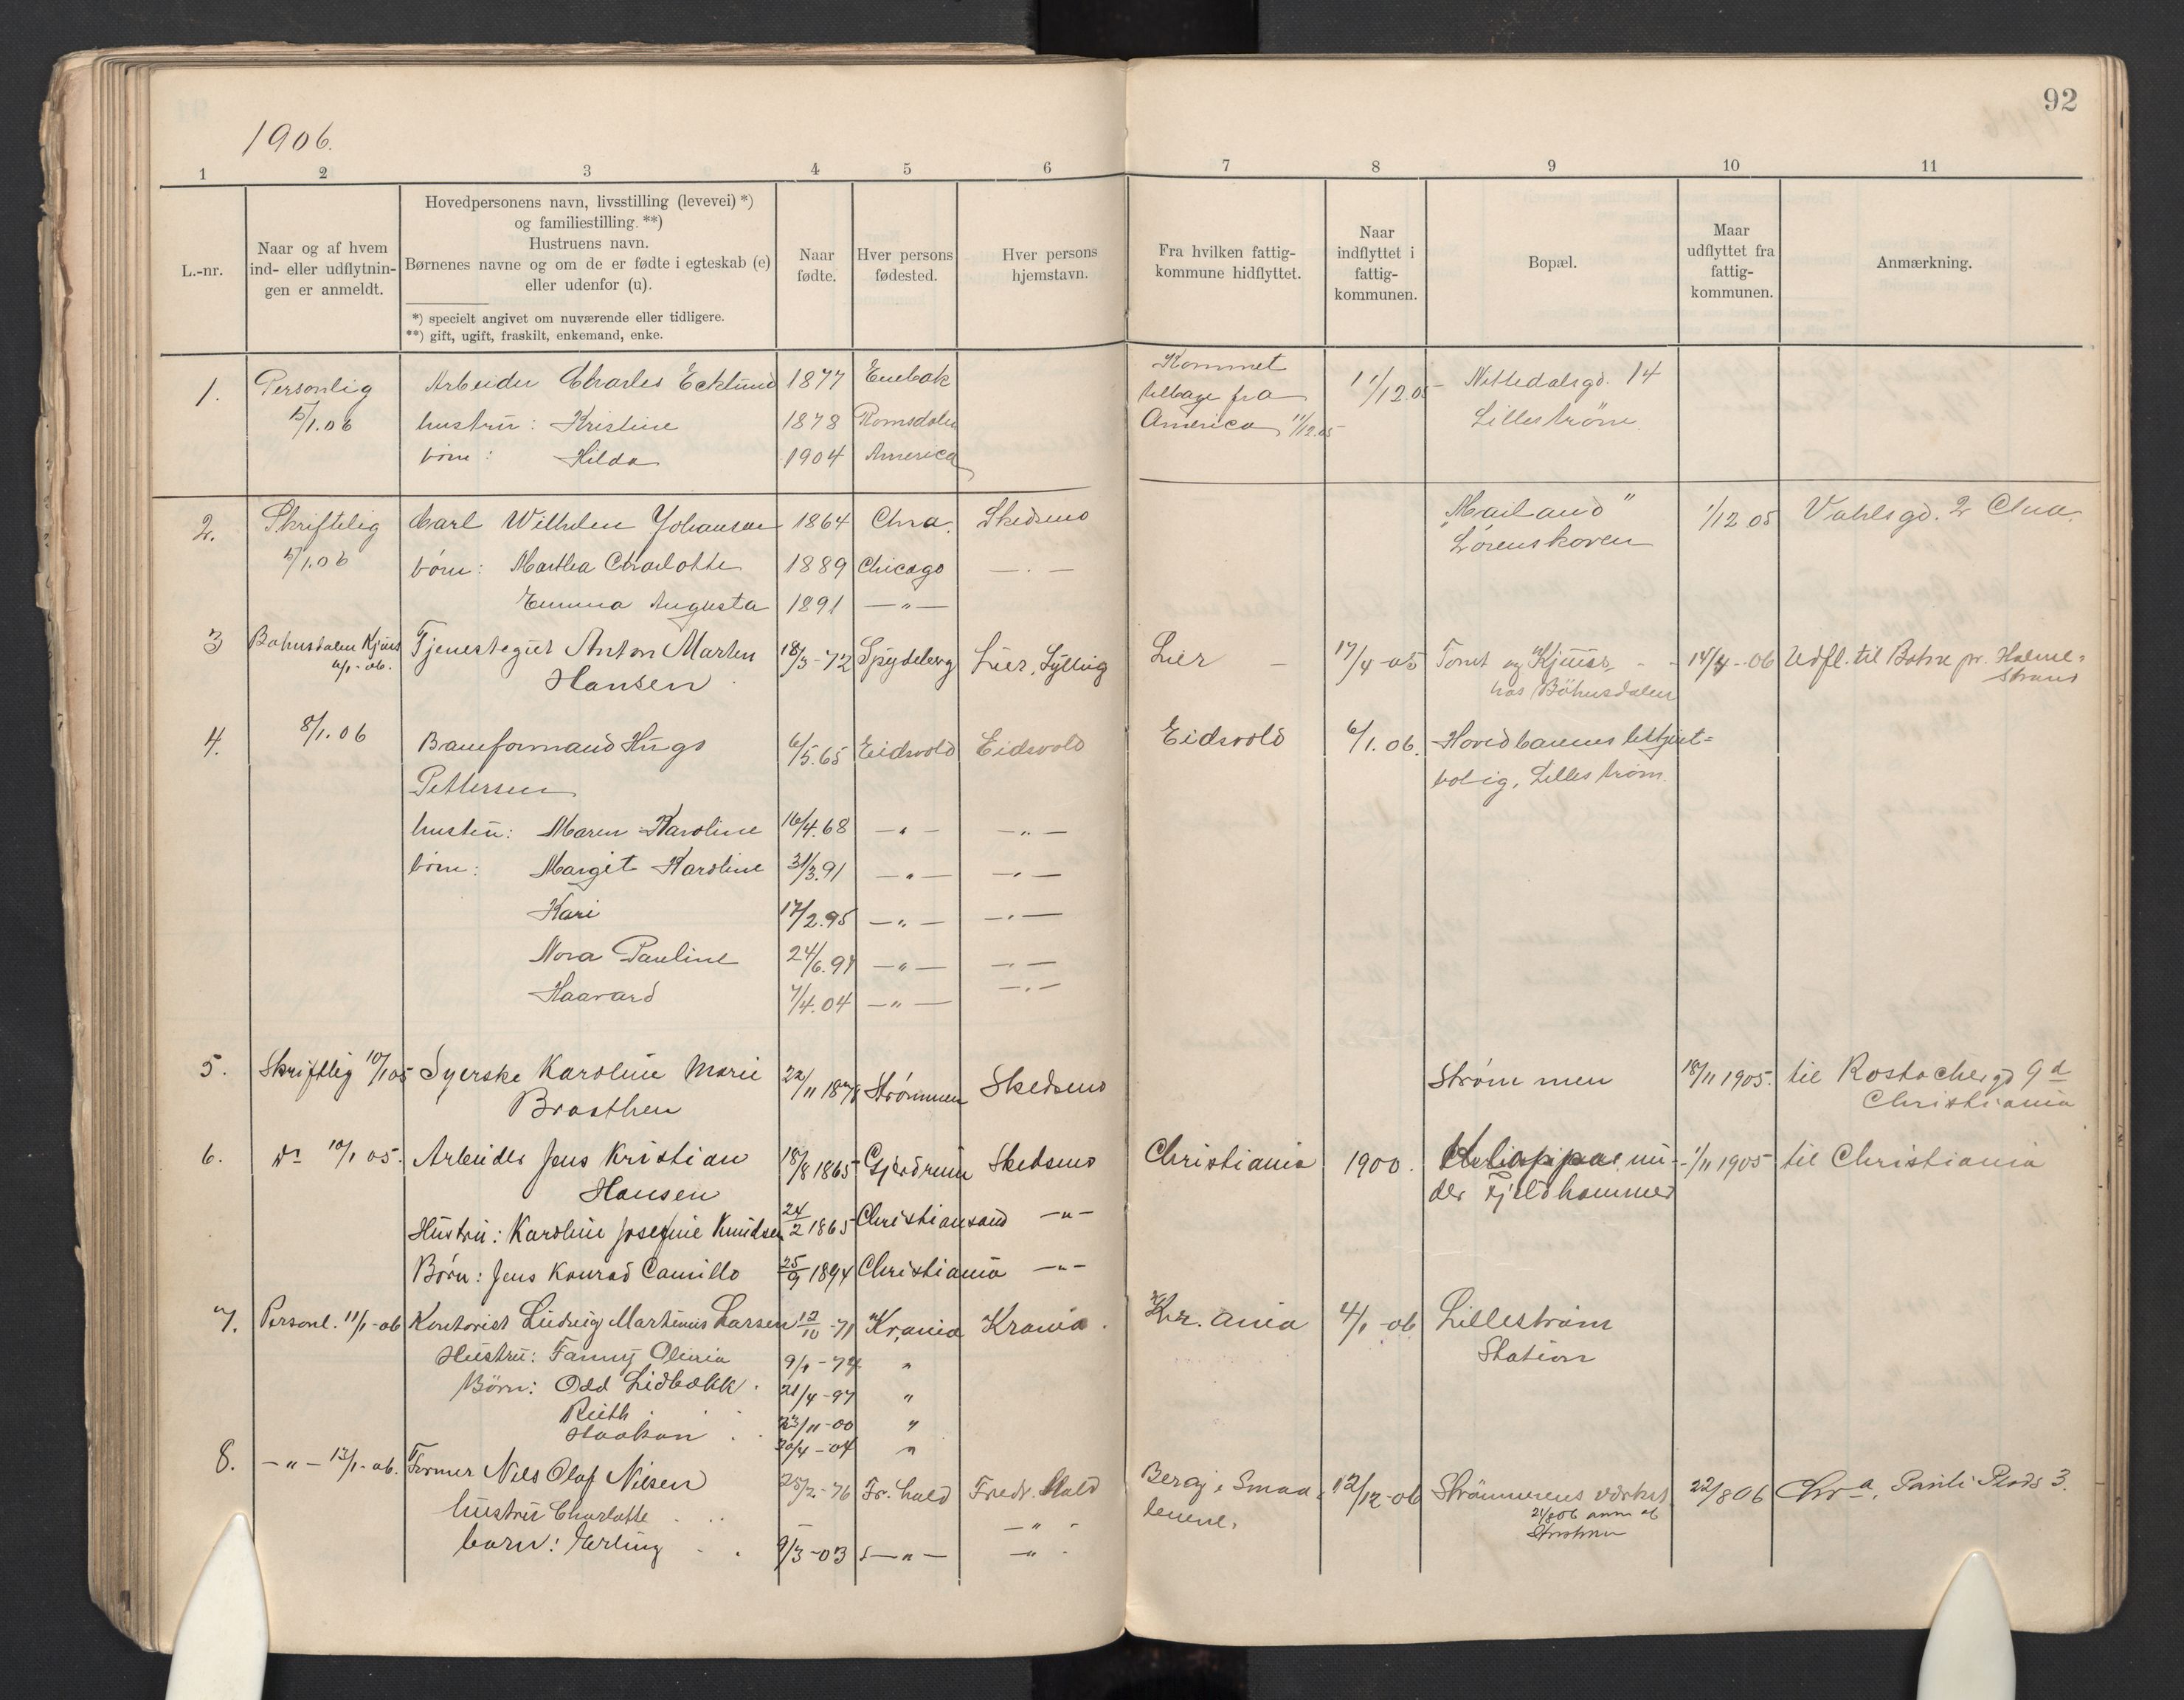 92
1906.
1 2 3 4 5 6 7 8 9 10 11
L.-nr.
Naar og af hvem
ind- eller udflytnin-
gen er anmeldt.
Hovedpersonens navn, livsstilling (levevei) *)
og familiestilling. **)
Hustruens navn.
Børnenes navne og om de er fødte i egteskab (e)
eller udenfor (u).
*) specielt angivet om nuværende eller tidligere.
**) gift, ugift, fraskilt, enkemand, enke.
Naar
fødte.
Hver persons
fødested.
Hver persons
hjemstavn.
Fra hvilken fattig-
kommune hidflyttet.
Naar
indflyttet i
fattig-
kommunen.
Bopæl.
Maar
udflyttet fra
fattig-
kommunen.
Anmærkning.
1. Personlig Arbeider Charles Ecklund 1877 Enebak Kommet 11/12.05 Nittedalsgd. 14
5/1.06 hustru: Kristine 1878 Romsdalen tilbage fra Lillestrøm.
børn: Hilda 1904 America America 11/12.05
2. Skriftelig Carl Wilhelm Johansen 1864 Chra. Skedsmo "Mailand" 1/12 05 Vahlsgd. 2 Chra.
5/1.06 børn: Martha Charlotte 1889 Chicago — . — Lørenskoven
Emma Augusta 1891 — " —
3 Bøhnsdalen Kjuus Tjenestegut Anton Marten 18/3-72 Spydeberg Lier, Sylling Lier 17/4-05 Tomt og Kjuus 14/4-06 Udfl. til Botne pr. Holme-
Hansen hos Bøhnsdalen strand
4. 8/1.06 Baneformand Hugo 6/5.65 Eidsvold Eidsvold Eidsvold 6/1.06. Hovedbanens betjent-
Pettersen bolig, Lillestrøm.
hustru: Maren Karoline 16/4.68 — " — — " —
børn: Margit Karoline 31/3.91 — " — — " —
Kari 17/2.95 — " — — " —
Nora Pauline 24/6.97 — " — — " —
Haavard 7/4.04 — " — — " —
5. Skriftlig 10/1 05 Syerske Karoline Marie 22/11 1878 Strømmen Skedsmo Strømmen 18/11 1905. til Rostochergd 9 d
Brosthen Christiania
6. do 10/1 05. Arbeider Jens Kristian 18/8 1865 Gjerdrum Skedsmo Christiania 1900. un- 1/11 1905 til Christiania
Hansen der Fjeldhammer
Hustru: Karoline Josefine Knudsen 24/2 1865 Christiansand — " —
Børn: Jens Konrad Camillo 25/9 1894 Christiania — " —
7. Personl. 11/1-06 Kontorist Ludvig Martinius Larsen 12/10-71 Kr.ania Krania. Kr. ania 4/1-06 Lillestrøm
Hustru: Fanny Olivia 9/1-74 " Station
Børn: Odd Lidbækk. 21/4-97 "
Ruth 23/11-00 "
Haakon 30/4-04 "
8. — " — 13/1-06. Former Nils Olaf Nilsen 25/2-76 Fr. hald Fredr. Hald Berg i Smaa- 12/12-06 Strømmens værkst. 22/8 06 Chr a, Pauls Plads 3.
hustru Charlotte — " — lenene.
barn: Erling 9/3-03 — " — — " —